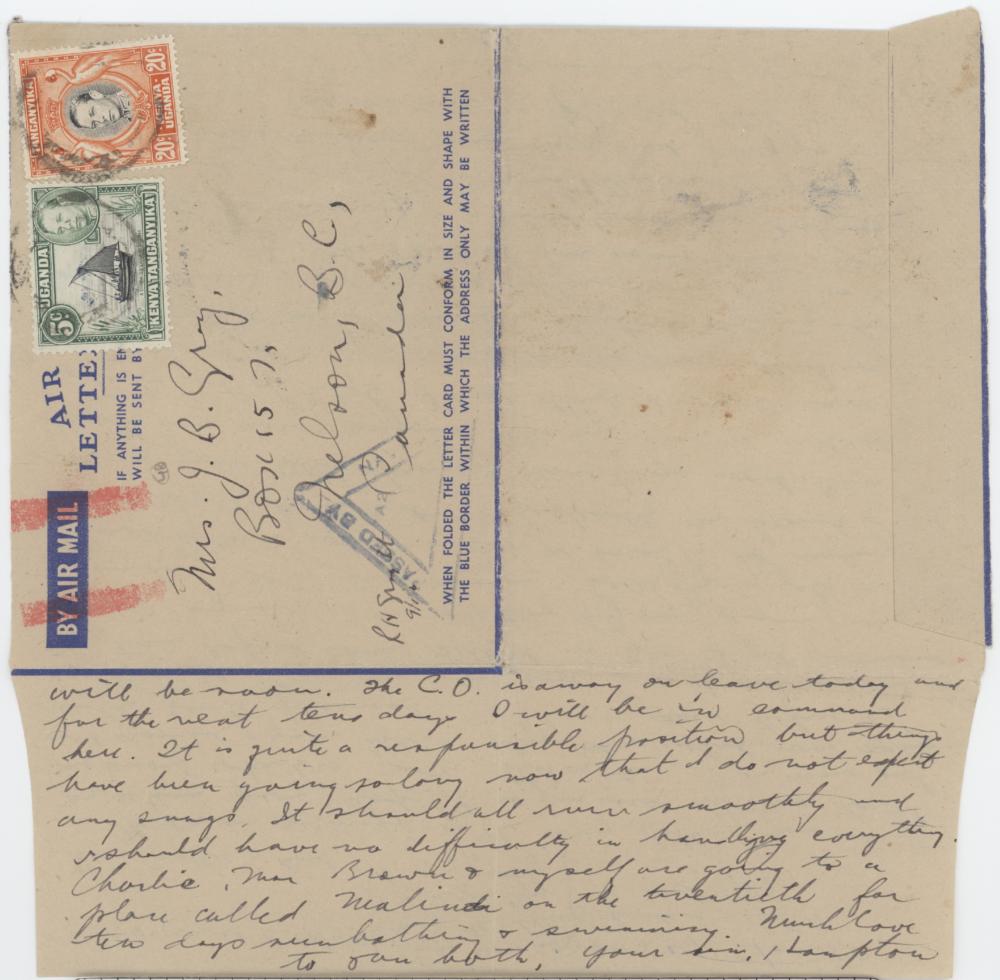 TANGANYIKA
KENYA
UGANDA
20c
20c
UGANDA
KENYA TANGANYIKA
5c
AIR
LETTER
IF ANYTHING IS EN
WILL BE SENT BY
BY AIR MAIL
Mrs. J. B. Gray,
Box 157,
Nelson, B.C,
Canada
PASSED BY
WHEN FOLDED THE LETTER CARD MUST CONFORM IN SIZE AND SHAPE WITH
THE BLUE BORDER WITHIN WHICH THE ADDRESS ONLY MAY BE WRITTEN
will be soon. The C.O. is away on leave today and
for the next ten days I will be in command
here. It is quite a responsible position but things
have been going so long now that I do not expect
any snags. It should all run smoothly and
I should have no difficulty in handling everything.
Charlie, Brown & myself are going to a
place called Malindi on the twentieth for
ten days sunbathing & swimming. Much love
to you both, your son, Hampton